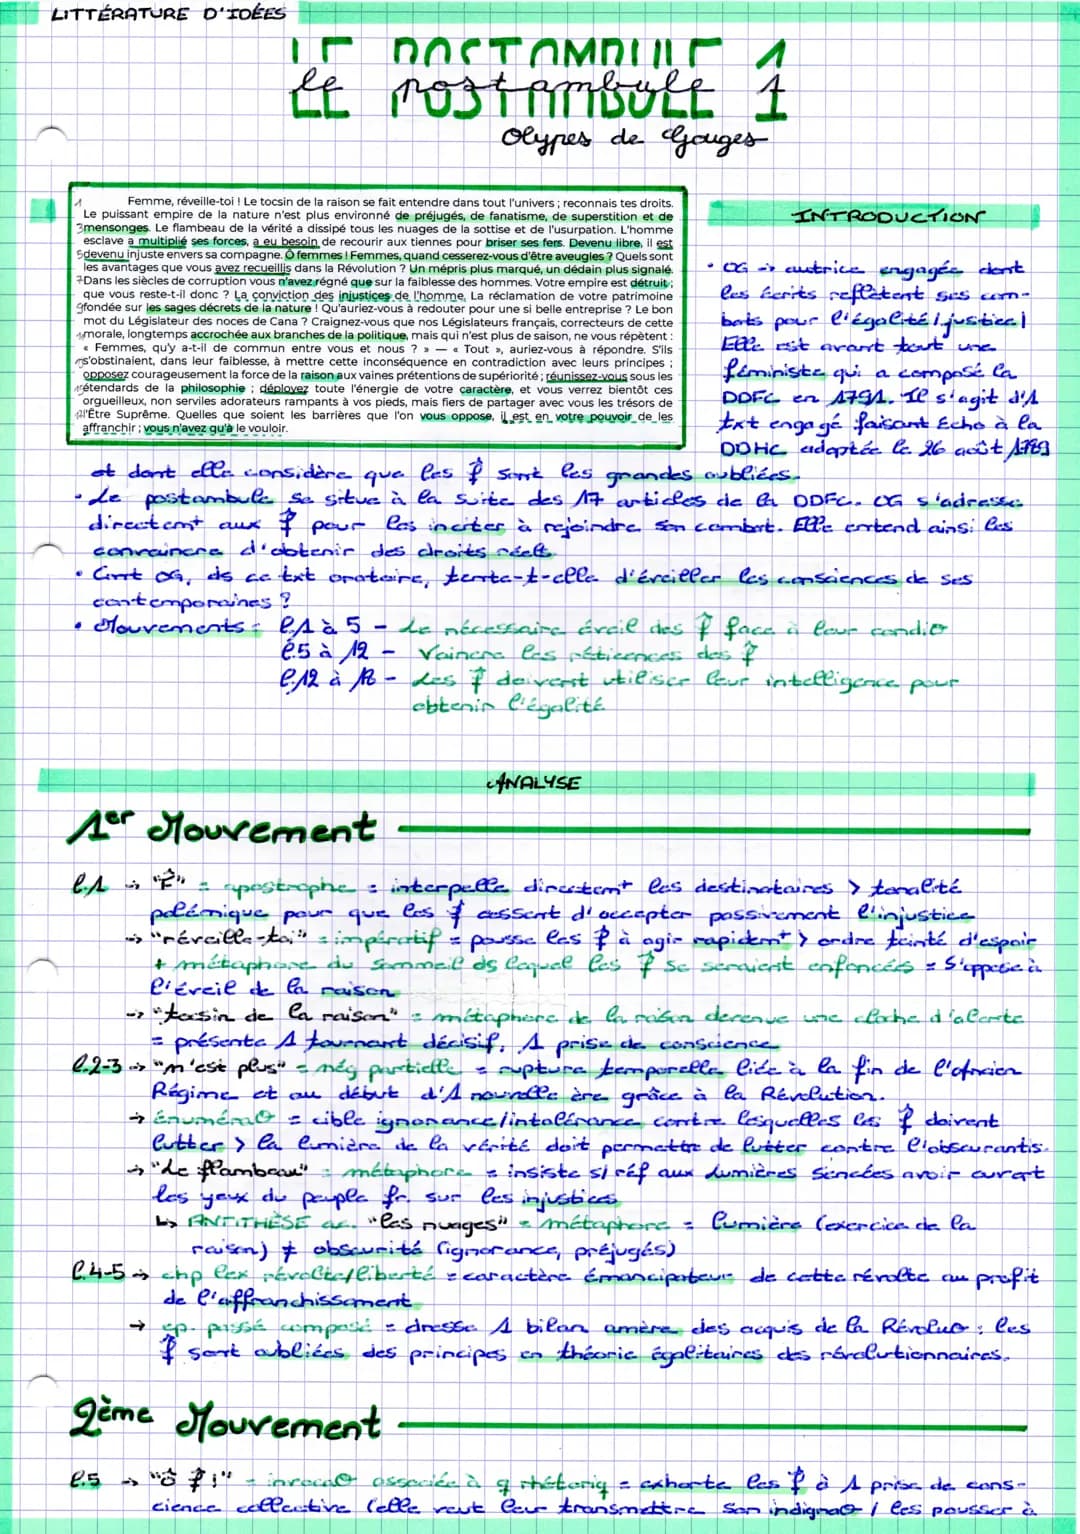 LITTÉRATURE D'IDÉES
LE POSTAMBULE 1
le postambule 1
Olypes de Gouges
Femme, réveille-toi ! Le tocsin de la raison se fait entendre dans tout l'univers ; reconnais tes droits.
Le puissant empire de la nature n'est plus environné de préjugés, de fanatisme, de superstition et de
3mensonges. Le flambeau de la vérité a dissipé tous les nuages de la sottise et de l'usurpation. L'homme
esclave a multiplié ses forces, a eu besoin de recourir aux tiennes pour briser ses fers. Devenu libre, il est
5devenu injuste envers sa compagne. Ô femmes ! Femmes, quand cesserez-vous d'être aveugles ? Quels sont
les avantages que vous avez recueillis dans la Révolution ? Un mépris plus marqué, un dédain plus signalé.
7Dans les siècles de corruption vous n'avez régné que sur la faiblesse des hommes. Votre empire est détruit ;
que vous reste-t-il donc ? La conviction des injustices de l'homme. La réclamation de votre patrimoine
9fondée sur les sages décrets de la nature ! Qu'auriez-vous à redouter pour une si belle entreprise ? Le bon
mot du Législateur des noces de Cana ? Craignez-vous que nos Législateurs français, correcteurs de cette
morale, longtemps accrochée aux branches de la politique, mais qui n'est plus de saison, ne vous répètent :
« Femmes, qu'y a-t-il de commun entre vous et nous ? » — « Tout », auriez-vous à répondre. S'ils
s'obstinaient, dans leur faiblesse, à mettre cette inconséquence en contradiction avec leurs principes ;
opposez courageusement la force de la raison aux vaines prétentions de supériorité ; réunissez-vous sous les
étendards de la philosophie ; déployez toute l'énergie de votre caractère, et vous verrez bientôt ces
orgueilleux, non serviles adorateurs rampants à vos pieds, mais fiers de partager avec vous les trésors de
l'Être Suprême. Quelles que soient les barrières que l'on vous oppose, il est en votre pouvoir de les
affranchir ; vous n'avez qu'à le vouloir.
INTRODUCTION
• OG -> autrice engagée dont
les écrits reflètent ses com-
bats pour l'égalité/justice/
Elle est avant tout une
féministe qui a composé la
DDFC en 1791. Il s'agit d'1
txt engagé faisant Echo à la
DDHC adoptée le 26 août 1789
et dont elle considère que les f sont les grandes oubliées.
• Le postambule se situe à la suite des 17 articles de la DDFC. OG s'adresse
directemt aux f pour les inciter à rejoindre son combat. Elle entend ainsi les
convaincre d'obtenir des droits réels.
• Cmt OG, ds ce txt oratoire, tente-t-elle d'éveiller les consciences de ses
contemporaines ?
• Mouvements : l.1 à 5 - Le nécessaire éveil des f face à leur condi°
l.5 à 12 - Vaincre les réticences des f
l.12 à 18 - Les f doivent utiliser leur intelligence pour
obtenir l'égalité
ANALYSE
1er Mouvement
l.1 -> "F" = apostrophe = interpelle directemt les destinataires > tonalité
polémique pour que les f cessent d'accepter passivement l'injustice
-> "réveille-toi" = impératif = pousse les f à agir rapidemt > ordre teinté d'espoir
+ métaphore du sommeil ds lequel les f se seraient enfoncées = s'oppose à
l'éveil de la raison
-> "tocsin de la raison" = métaphore de la raison devenue une cloche d'alerte
= présente 1 tournant décisif, 1 prise de conscience
l.2-3 -> "n'est plus" = nég partielle = rupture temporelle liée à la fin de l'Ancien
Régime et au début d'1 nouvelle ère grâce à la Révolution.
-> énuméra° = cible ignorance/intolérance contre lesquelles les f doivent
lutter > la lumière de la vérité doit permettre de lutter contre l'obscurantis.
-> "Le flambeau" = métaphore = insiste s/ réf aux Lumières sencées avoir ouvert
les yeux du peuple fr. sur les injustices
↳ ANTITHÈSE av. "les nuages" = métaphore = lumière (exercice de la
raison) ≠ obscurité (ignorance, préjugés)
l.4-5 -> chp lex révolte/liberté = caractère émancipateur de cette révolte au profit
de l'affranchissement
-> cp. passé composé = dresse 1 bilan amère des acquis de la Révolu° : les
f sont oubliées des principes en théorie égalitaires des révolutionnaires.
2ème Mouvement
l.5 -> "ô f !" = invoca° associée à q rhétoriq = exhorte les f à 1 prise de cons-
cience collective (elle veut leur transmettre son indigna° / les pousser à